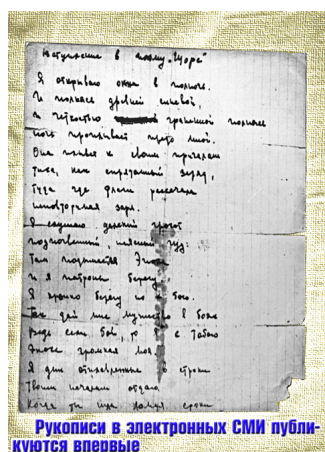 Вступление в поэму „Щорс"
Я открываю окна в полночь.
И полнясь древней синевой,
и четкостью граненой полнясь
ночь проплывает предо мной.
Она плывет к своим причалам
тиха, как спрятанный заряд,
туда где флаги раскачал
неповторимая заря.
Я слышу далекий грохот
подпочвенный, неясный гуд:
Там поднимается Эпоха
и я патроны берегу
Я крепко берегу их к бою.
Так дай мне мужество в боях
Ведь если бой, то я с тобою
Эпоха громкая моя.
Я дни отправленные в строки
твоим началам отдаю
Когда ты шла ломая сроки
Рукописи в электронных СМИ публи-
куются впервые